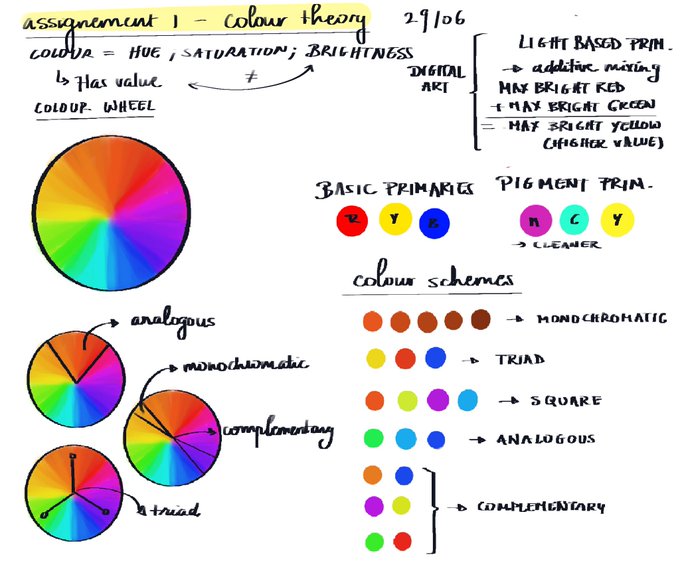 assignement 1 - colour theory
29/06
COLOUR = HUE, SATURATION; BRIGHTNESS
↳ Has value
≠
COLOUR WHEEL
DIGITAL ART
LIGHT BASED PRIM.
→ additive mixing
MAX BRIGHT RED
+ MAX BRIGHT GREEN
= MAX BRIGHT YELLOW
(HIGHER VALUE)
BASIC PRIMARIES
R Y B
PIGMENT PRIM.
M C Y
→ CLEANER
colour schemes
→ MONOCHROMATIC
→ TRIAD
→ SQUARE
→ ANALOGOUS
→ COMPLEMENTARY
analogous
monochromatic
complementary
triad